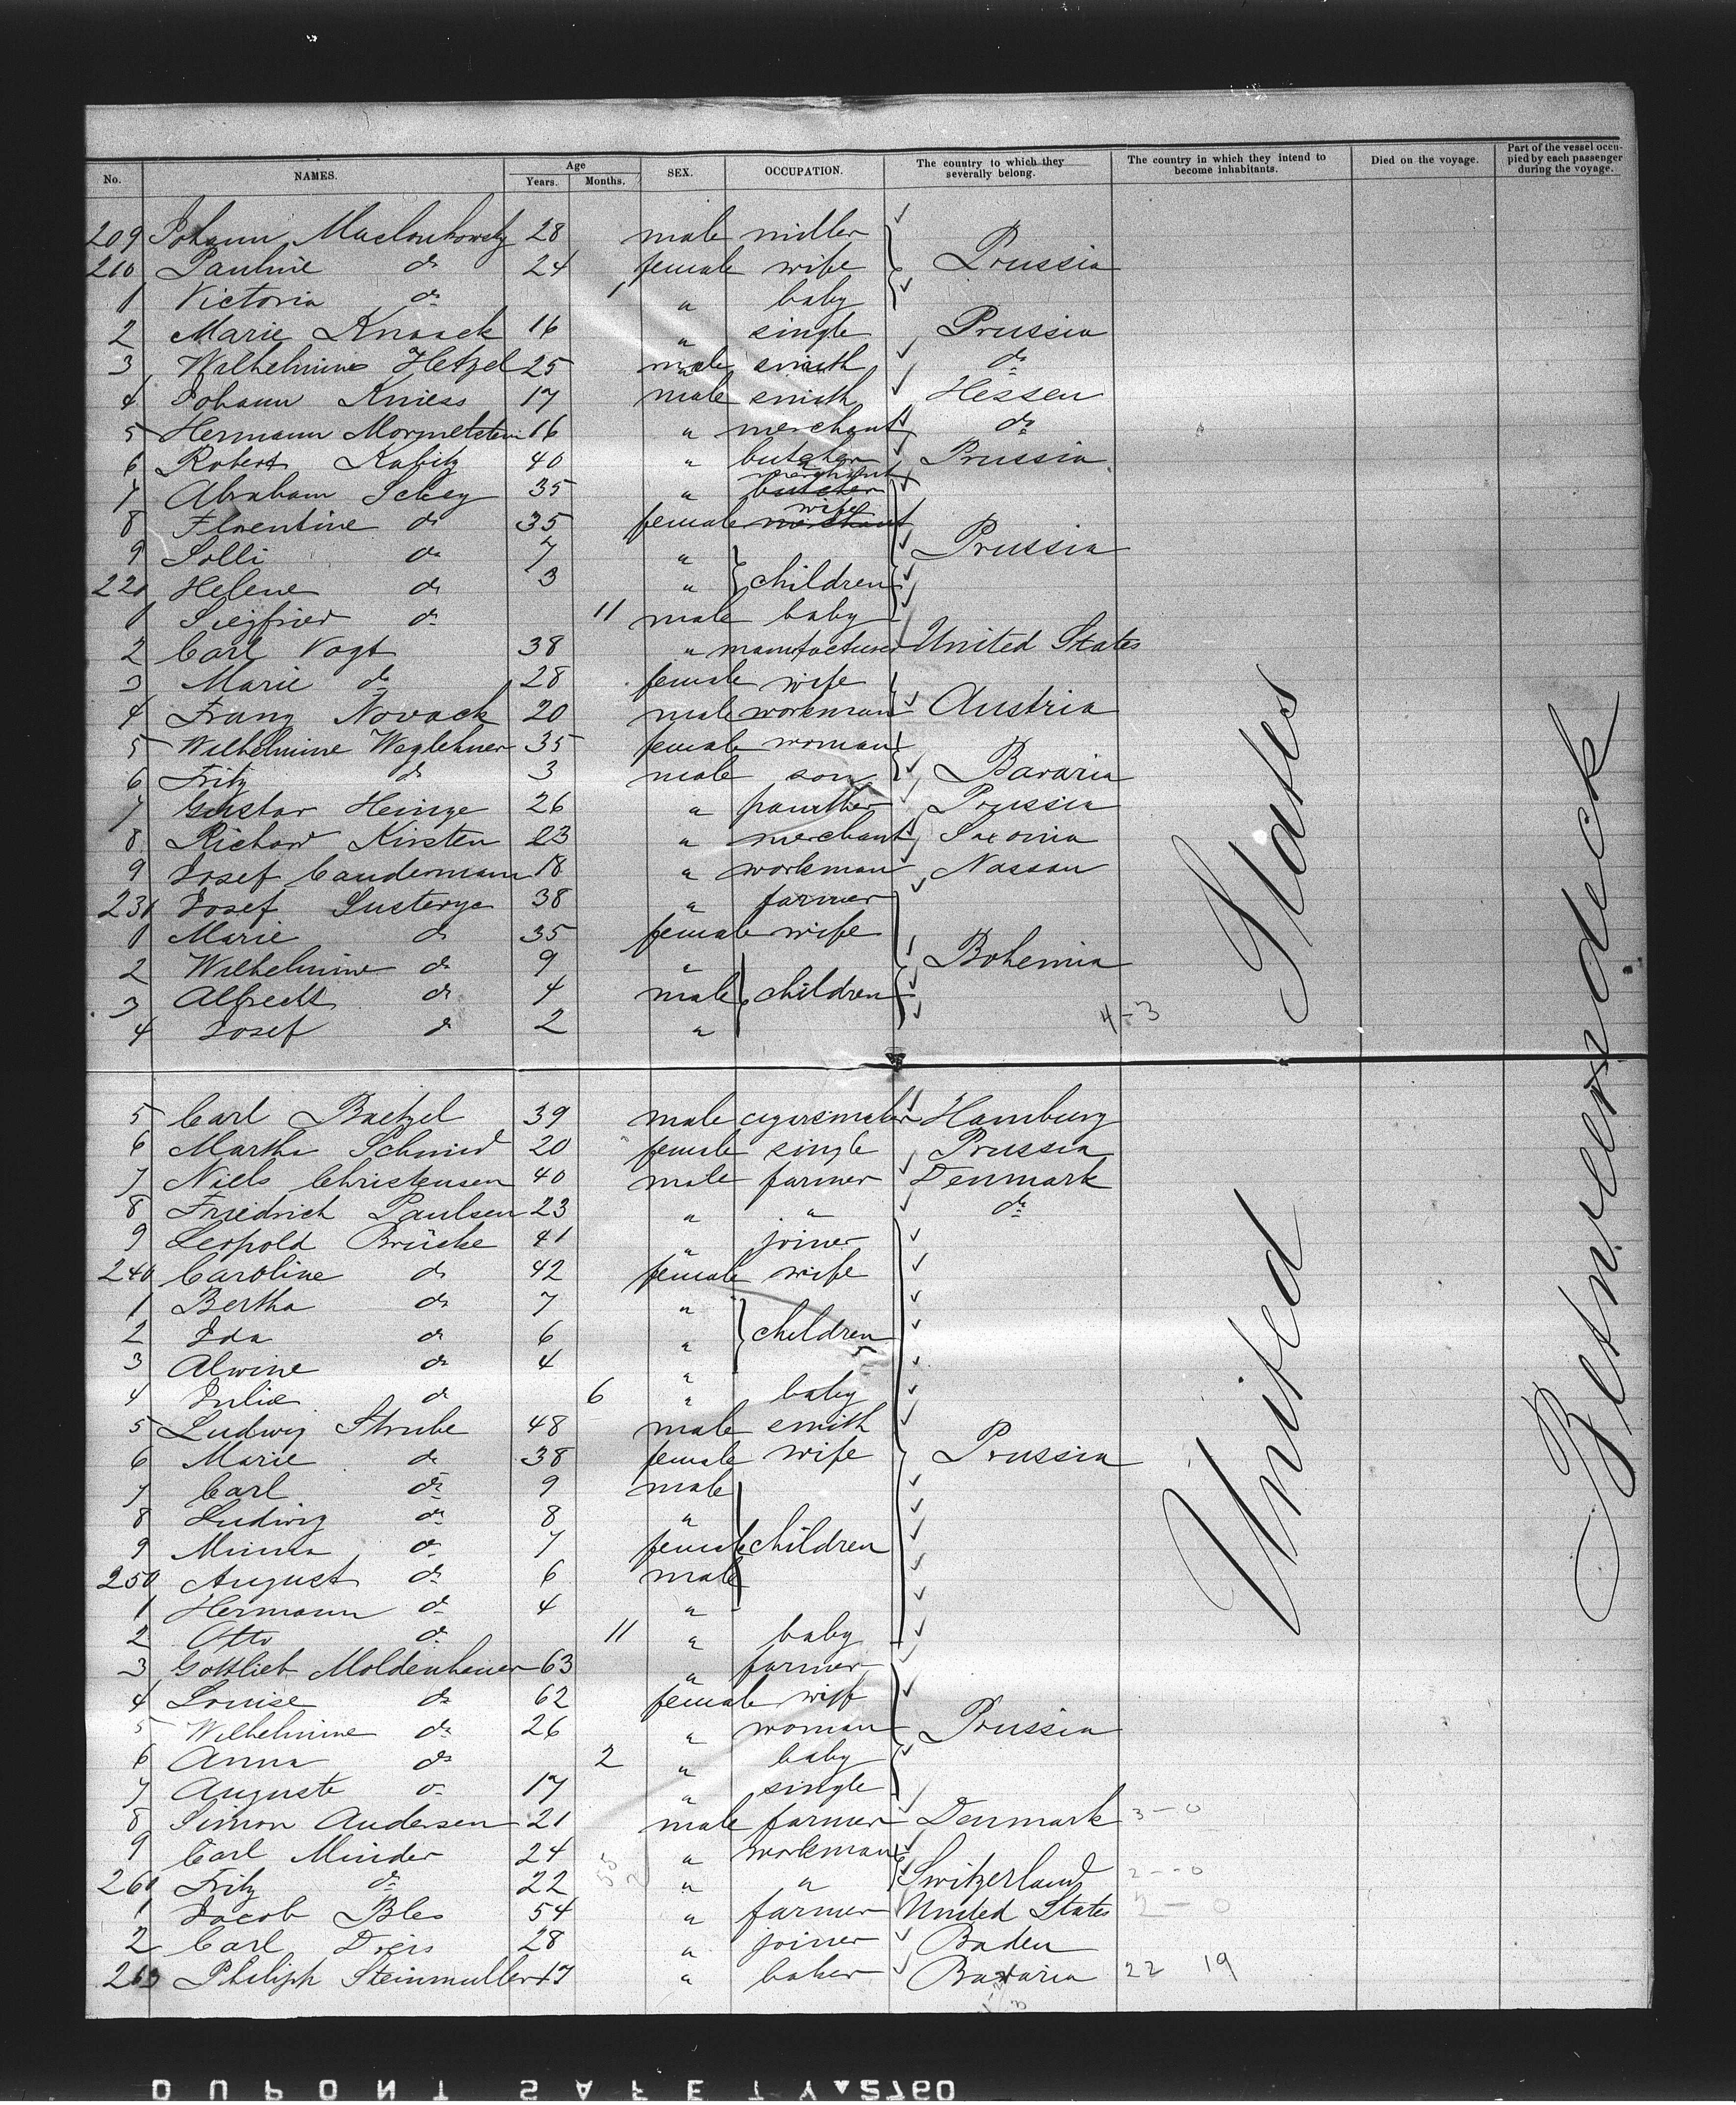 No. NAMES. Age Years. Months. SEX. OCCUPATION. The country to which they severally belong. The country in which they intend to become inhabitants. Died on the voyage. Part of the vessel occupied by each passenger during the voyage.
209 Johann 28 male miller
210 Pauline do 24 female wife Prussia
1 Victoria do 1 " baby
2 Marie Knaack 16 " single Prussia
3 Wilhelmine Hetzel 25 do
4 Johann Kniess 17 male smith Hessen
5 Hermann Mormelstein 16 " merchant do
6 Robert Kabitz 40 " butcher Prussia
7 Abraham 35 " merchant butcher
8 Florentine do 35 female wife merchant
9 Solli do 7 " Prussia
220 Helene do 3 " children
1 Siegfried do 11 male baby
2 Carl Vogt 38 " manufacturer United States
3 Marie do 28 female wife
4 Franz Novack 20 male workman Austria
5 Wilhelmine Weglehner 35 female woman
6 Fritz do 3 male son Bavaria
7 Gustav Heinze 26 " Prussia
8 Richard Kirsten 23 " merchant Saxonia
9 Josef Caudermann 18 " workman Nassau
230 Josef 38 " farmer
1 Marie do 35 female wife
2 Wilhelmine do 9 " Bohemia
3 Albrecht do 4 male children
4 Josef do 2 " 4-3
5 Carl Baetzel 39 male cigarsmaker Hamburg
6 Martha Schmid 20 female single Prussia
7 Niels Christensen 40 male farmer Denmark
8 Friedrich Paulsen 23 " " do
9 Leopold Brücke 41 " joiner
240 Caroline do 42 female wife
1 Bertha do 7 "
2 Ida do 6 " children
3 Alwine do 4 "
4 Julie do 6 " baby
5 Ludwig Strube 48 male smith
6 Marie do 38 female wife Prussia
7 Carl do 9 male
8 Ludwig do 8 "
9 Minna do 7 female children
250 August do 6 male
1 Hermann do 4 "
2 Otto do 11 " baby
3 Gottlieb Moldenhauer 63 " farmer
4 Louise do 62 female wife
5 Wilhelmine do 26 " woman Prussia
6 Anna do 2 " baby
7 Auguste do 17 " single
8 Simon Andersen 21 male farmer Denmark 3-0
9 Carl Minder 24 " workman
260 Fritz do 22 " " Switzerland 2-0
1 Jacob Bles 54 " farmer United States 2-0
2 Carl 28 " joiner Baden
263 Philiph Steinmuller 17 " baker Bavaria 22 19
United States
Betweendeck
DUPONT SAFETY 2760